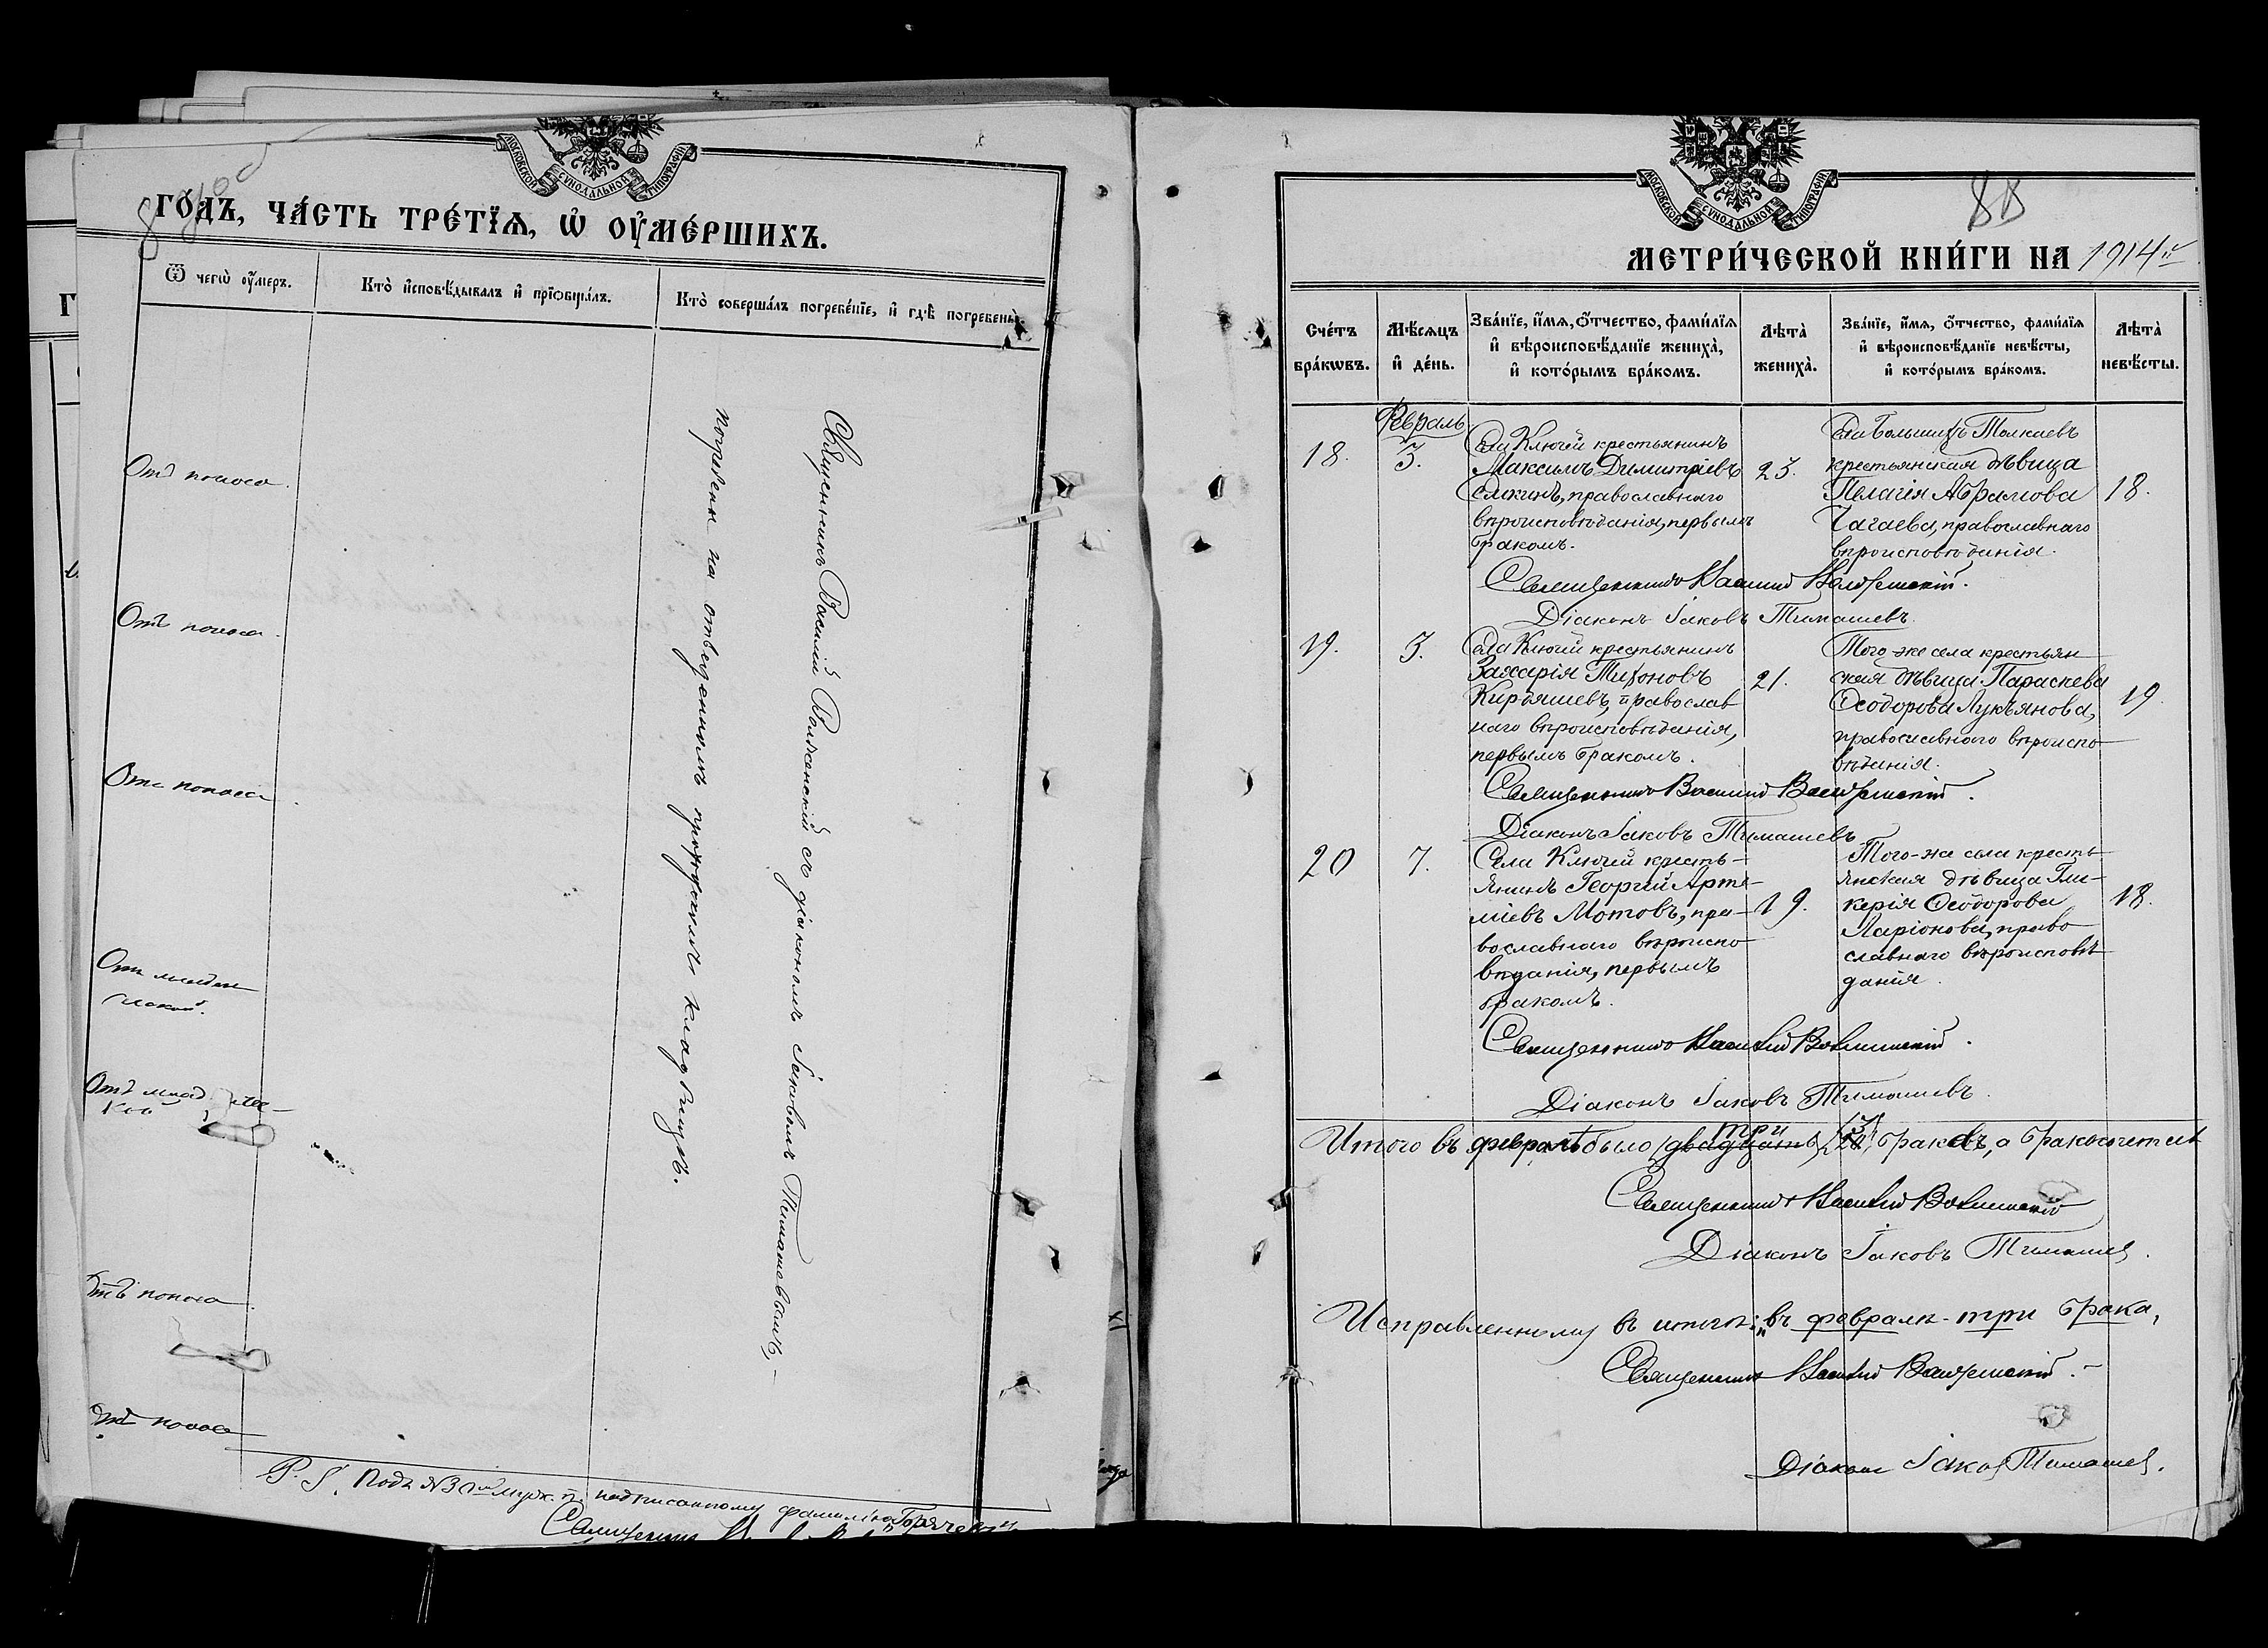 МОСКОВСКОЙ СѴНОДАЛЬНОЙ ТИПОГРАФІИ
ГО́ДЪ, ЧА́СТЬ ТРЕ́ТЇѦ, Ѡ҆ ОУ҆МЕ́РШИХЪ.
Ѿ чегѡ̀ оу҆́меръ.
Кто̀ и҆сповѣ́дывалъ и҆ прїѡбща́лъ.
Кто̀ соверша́лъ погребе́нїе, и҆ гдѣ̀ погребены̀.
Отъ поноса.
Отъ поноса.
Отъ поноса.
Отъ младен
ческой.
Отъ млад
кой
Отъ поноса.
Отъ поноса
Священникъ Василій с діакономъ Іаковомъ Тимашевымъ, –
погребены на отведенномъ приходскимъ кладбищѣ.
P. S. Подъ №3 муж. п. подписанному фамилію „Горячевъ"
Священникъ
МОСКОВСКОЙ СѴНОДАЛЬНОЙ ТИПОГРАФІИ
88
МЕТРИ́ЧЕСКОЙ КНИ́ГИ НА 1914й
Сче́тъ бра́кѡвъ.
Мѣ́сѧцъ и҆ де́нь.
Зва́нїе, и҆́мѧ, ѻ҆́тчество, фами́лїѧ
и҆ вѣроисповѣ́данїе жениха̀,
и҆ кото́рымъ бра́комъ.
Лѣта̀ жениха̀.
Зва́нїе, и҆́мѧ, ѻ҆́тчество, фами́лїѧ
и҆ вѣроисповѣ́данїе невѣ́сты,
и҆ кото́рымъ бра́комъ.
Лѣта̀ невѣ́сты.
Февраль
18.
3.
Села Ключей крестьянинъ
Максимъ Димитріевъ
Емкинъ, православнаго
вѣроисповѣданія, первымъ
бракомъ.
23.
Села Большихъ Толкаевъ
крестьянская дѣвица
Пелагія Абрамова
Чагаева, православнаго
вѣроисповѣданія.
18.
Священникъ Василій
Діаконъ Іаковъ Тимашевъ.
19.
3.
Села Ключей крестьянинъ
Захарія Тихоновъ
Кирдяшевъ, православ
наго вѣроисповѣданія,
первымъ бракомъ.
21.
Того же села крестьян
ская дѣвица Параскева
Ѳеодорова Лукьянова,
православнаго вѣроиспо
вѣданія.
19.
Священникъ Василій
Діаконъ Іаковъ Тимашевъ
20
7.
Села Ключей кресть–
янинъ Георгій Арте–
міевъ Мотовъ, пра–
вославнаго вѣроиспо
вѣданія, первымъ
бракомъ.
19.
Того-же села кресть
янская дѣвица Гли–
керія Ѳеодорова
Ларіонова, право
славнаго вѣроисповѣ
данія.
18.
Священникъ Василій
Діаконъ Іаковъ Тимашевъ.
три 3
Итого въ февралѣ было (двадцать) (20) браковъ, а бракосочетав
Священникъ Василій
Діаконъ Іаковъ Тимашев.
Исправленному въ итогѣ: „въ февралѣ - три брака,
Священникъ Василій
Діаконъ Іаков Тимашев.